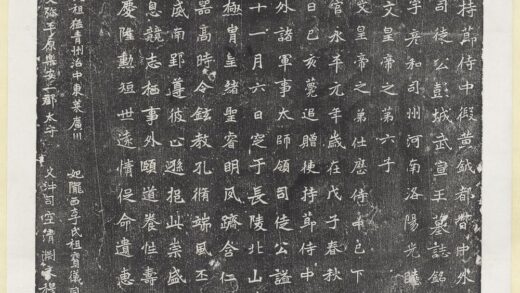 持節侍中假黃鉞都督中外
司徒公彭城武宣王墓誌銘
字彥和司州河南洛陽光睦
文皇帝之第六子
文皇帝之第仕歷侍中已下
永平元年歲在戊子春秋
日己亥薨追贈使持節侍中
外諸軍事太師領司徒公謚
十一月六日窆于長陵北山
極冑皇緒聖睿明夙躋含仁
器高時令鉉教孔脩端風丕
威南郢遵彼止遜挹此崇盛
息競志栖事外頤道養性壽
慶隆勳短世遠情促命遺惠
祖桓青州治中東萊廣川
妃隴西李氏祖寶儀同
父彌平原樂安二郡太守
父沖司空清淵文穆